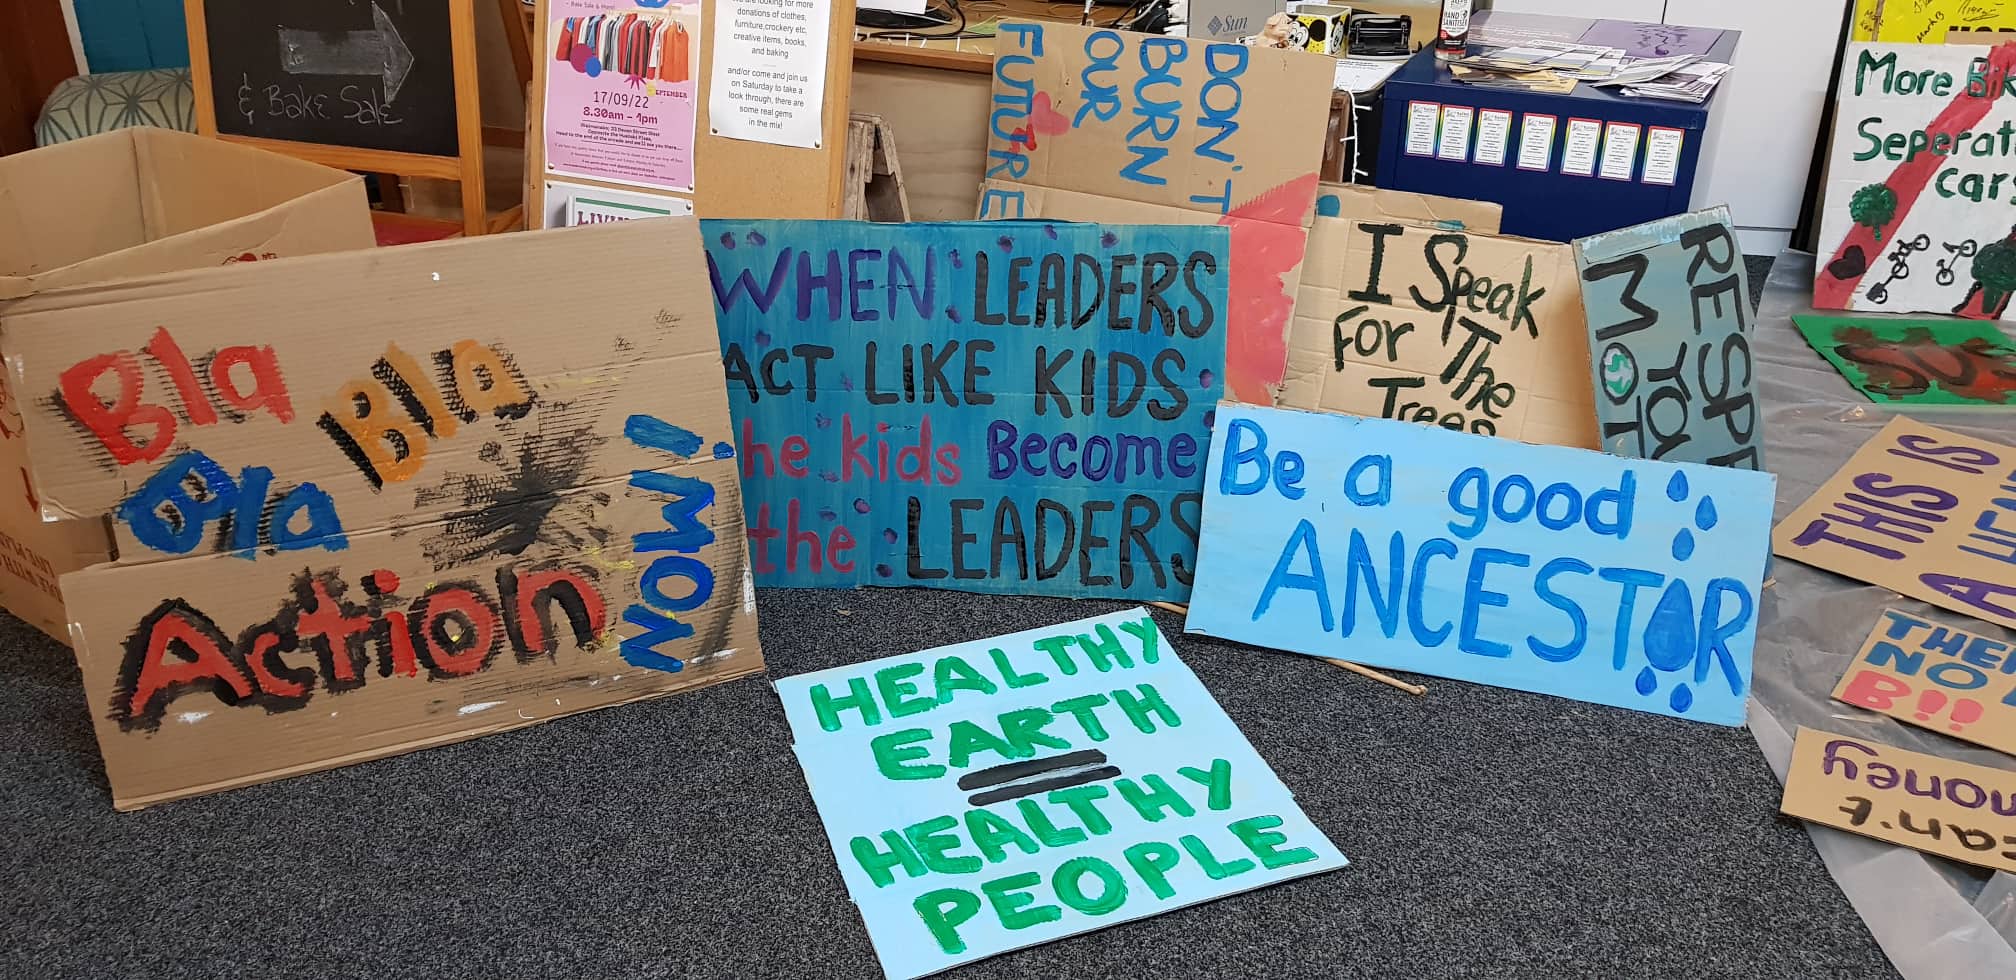 & Bake Sale
Rake Sale & More!
SEPTEMBER
17/09/22
8.30am – 1pm
We are looking for more
donations of clothes,
furniture,crockery etc,
creative items, books,
and baking
and/or come and join us
on Saturday to take a
look through, there are
some real gems
in the mix!
LIVIN
DON'T
BURN
OUR
FUTURE
Sun
HAND
SANITISER
More Bik
Seperat
cars
SOS
Bla
Bla
Bla
Action
NOW!
WHEN LEADERS
ACT LIKE KIDS
he kids Become
the LEADERS
I Speak
For The
Trees
RESPE
YOU
MOT
Be a good
ANCESTOR
HEALTHY
EARTH
=
HEALTHY
PEOPLE
THIS IS
A
THE
NO
B!!
can't
money